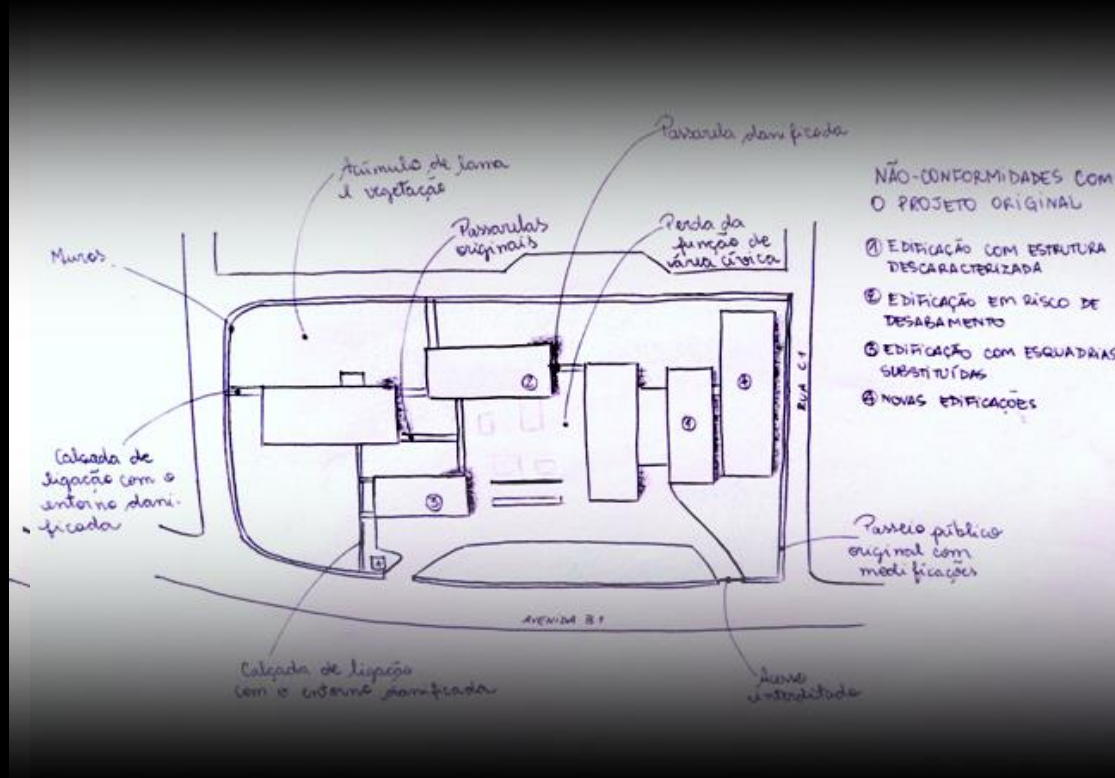 Passarela danificada
Acúmulo de lama
e vegetação
Passarelas
originais
Perda da
função de
área cívica
Muros
NÃO-CONFORMIDADES COM
O PROJETO ORIGINAL
① EDIFICAÇÃO COM ESTRUTURA
DESCARACTERIZADA
② EDIFICAÇÃO EM RISCO DE
DESABAMENTO
③ EDIFICAÇÃO COM ESQUADRIAS
SUBSTITUÍDAS
④ NOVAS EDIFICAÇÕES
②
④
①
③
④
RUA C1
Calçada de
ligação com o
entorno dani-
ficada
Passeio público
original com
modificações
AVENIDA B1
Calçada de ligação
com o entorno danificada
Acesso
interditado